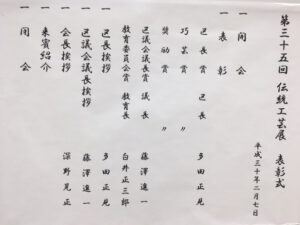 第三十五回 伝統工芸展 表彰式
平成三十年二月七日
一 開会
一 表彰
区長賞 区長 多田正見
巧芸賞 〃
奨励賞 〃
区議会議長賞 議長 藤澤進一
教育委員会賞 教育長 白井正三郎
一 区長挨拶 多田正見
一 区議会議長挨拶 藤澤進一
一 会長挨拶 深野晃正
一 来賓紹介
一 閉会